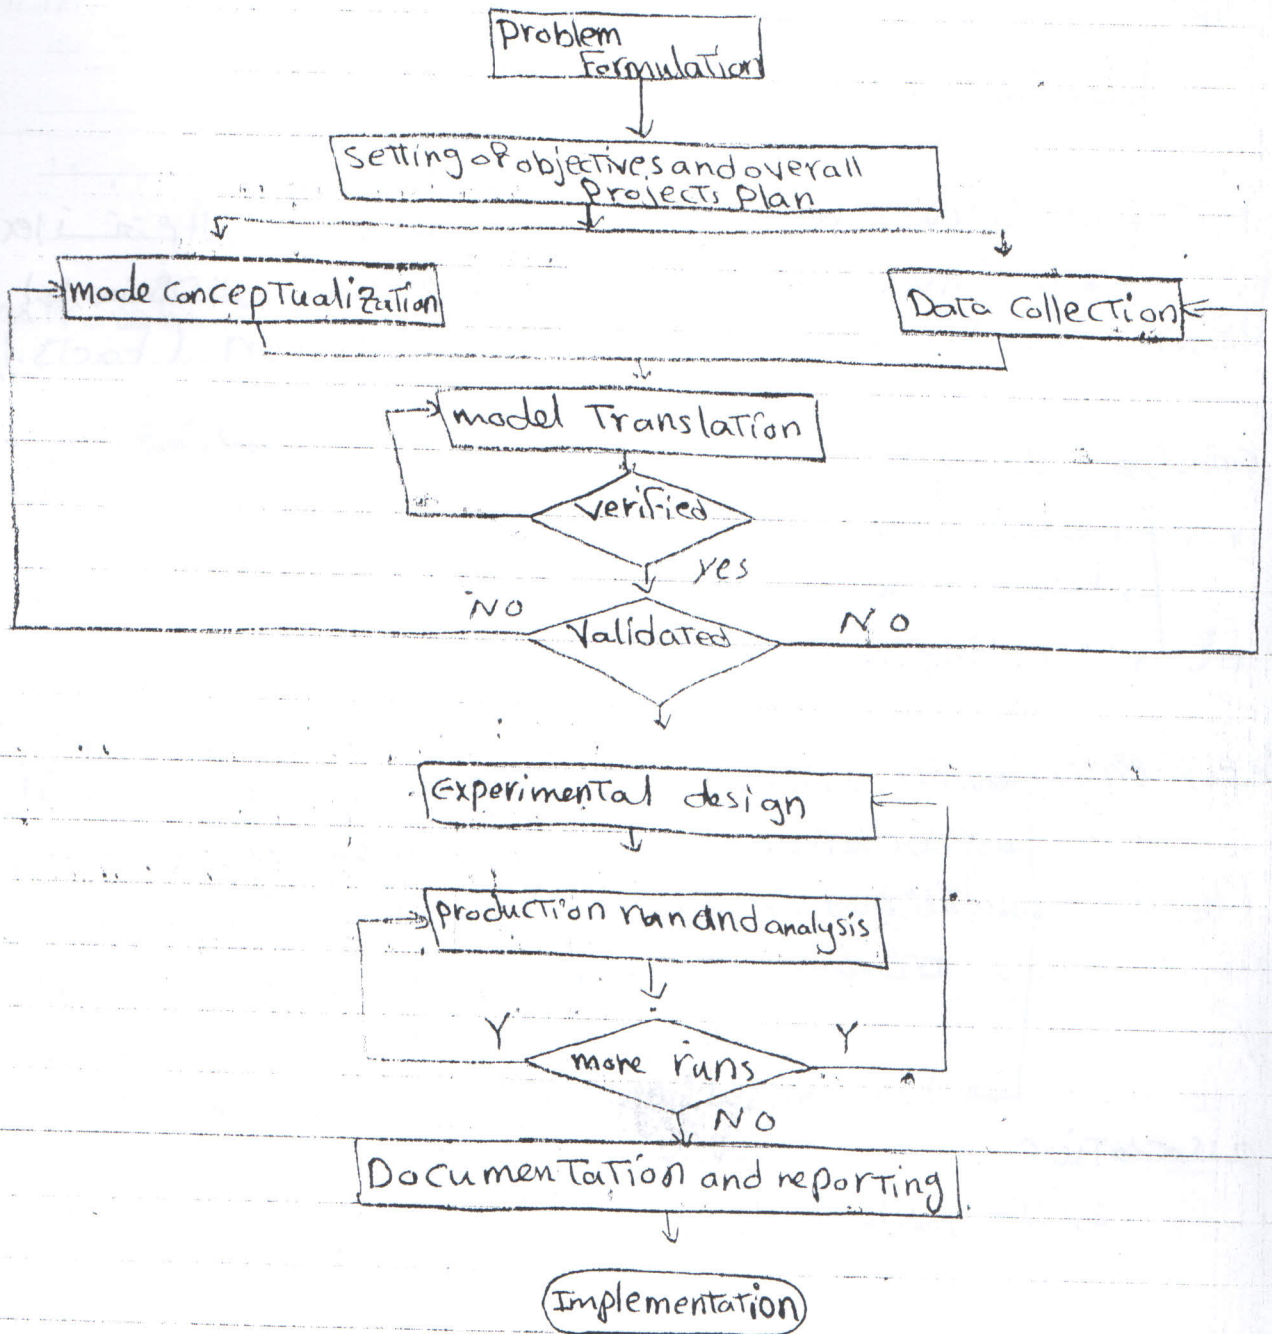 problem
Formulation
setting of objectives and overall
projects plan
mode conceptualization
Data collection
model Translation
verified
yes
NO
validated
NO
Experimental design
production run and analysis
Y
more runs
Y
NO
Documentation and reporting
Implementation